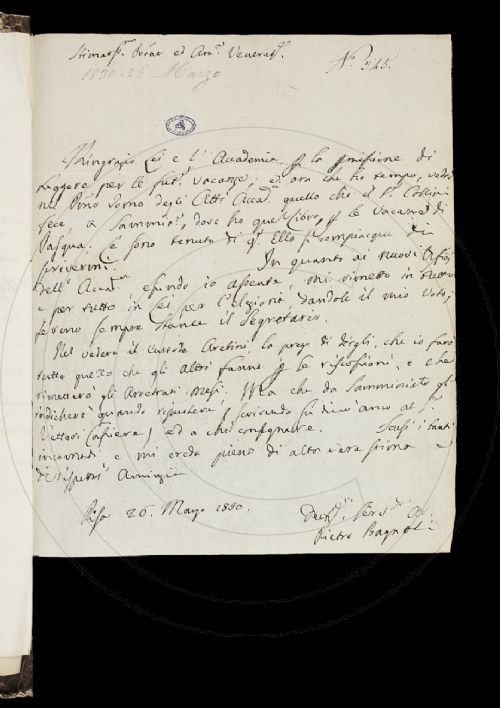 N.° 345.
1830. 26. Marzo
Ringrazio Lei e l'Accademia p la missione di
leggere per le fut.e vacanze. ed ora che ho tempo, vedrò
nel Primo Tomo degli Atti Accad.ci quello che il S.r
fece, a Samminiato, dove ho quel libro, p le Vacanze di
Pasqua. e sono tenuto di q.to Ella si compiacque di
scrivermi. In quanto ai nuovi Ufizj
dell'Accad.a essendo io assente, mi rimetto in tutto
e per tutto in Lei per l'elezioni, dandole il mio Voto,
fermo sempre stante il Segretario.
Nel vedere il Custode Aretini la prego di dirgli, che io farò
tutto quello che gli altri fanno p le riscossioni, e che
rimetterò gli Arretrati Mesi. Ma che da Samminiato gli
indicherò quando, scrivendo anco al S.r
Vettori Cassiere, ed a chi consegnare. Scusi i tanti
incomodi e mi creda pieno di alta vera stima e
Amicizia
Pisa 26. Marzo 1830.
Pietro Bagnoli